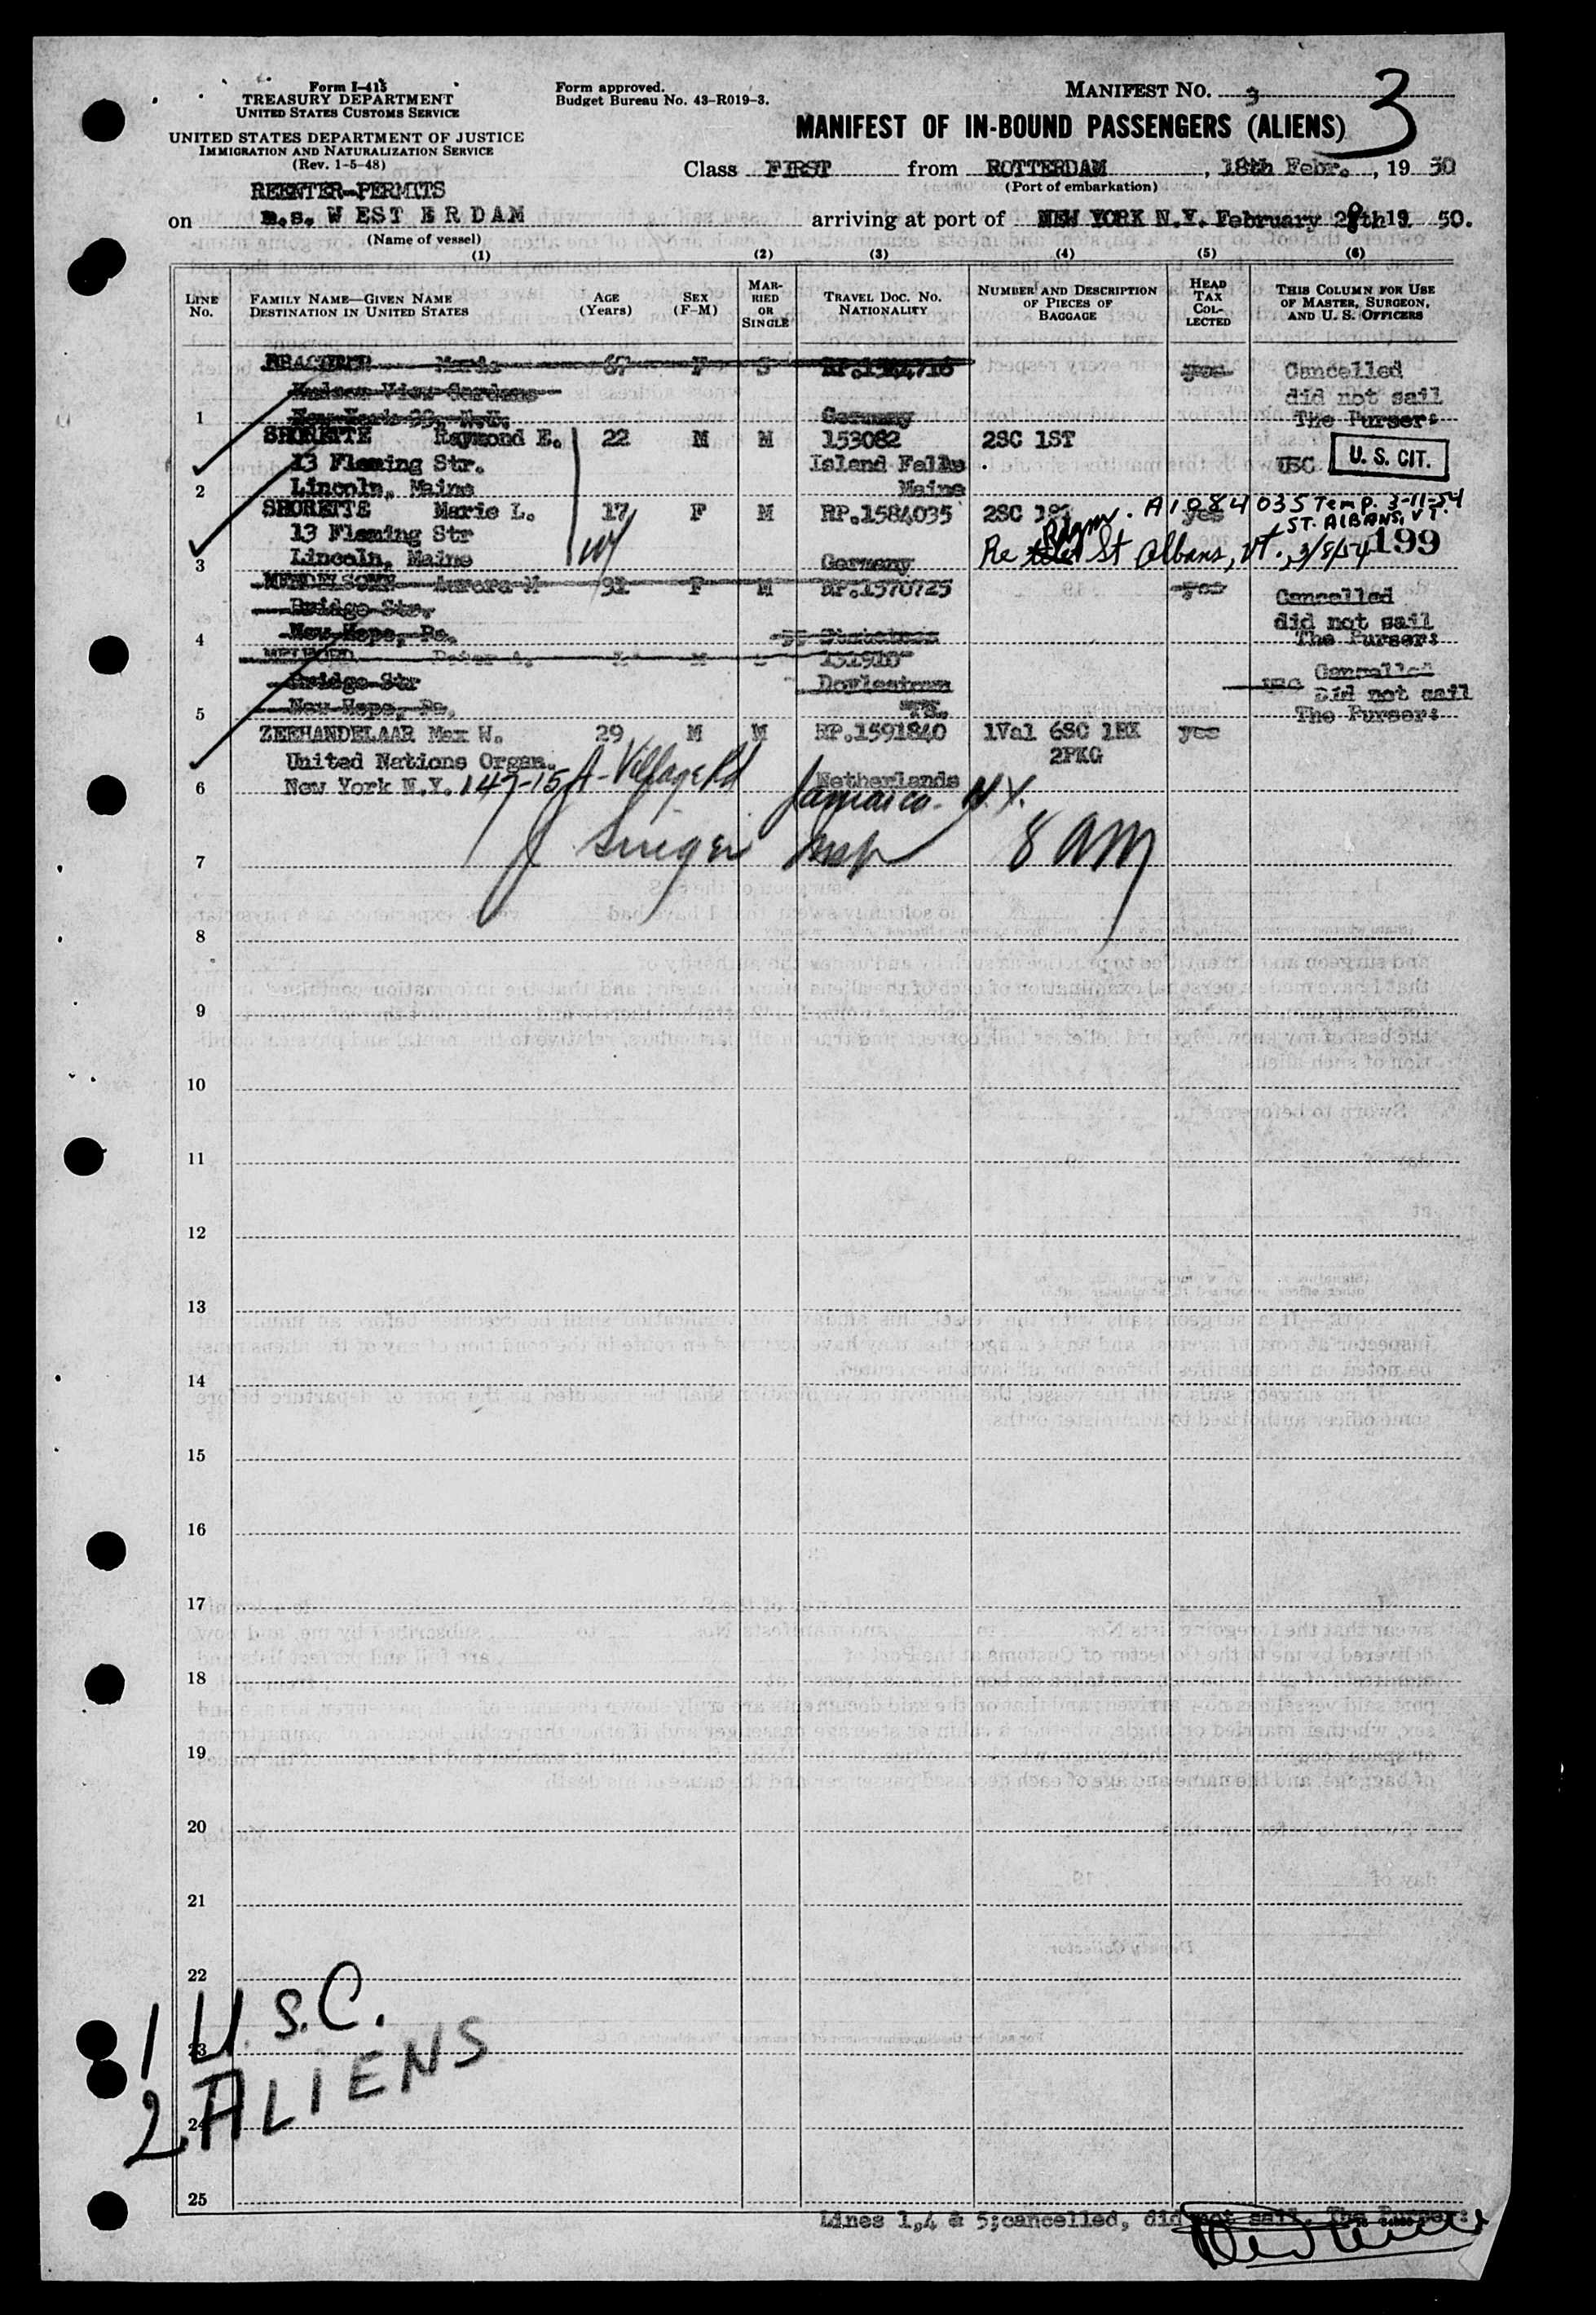 Form I-415
TREASURY DEPARTMENT
UNITED STATES CUSTOMS SERVICE
UNITED STATES DEPARTMENT OF JUSTICE
IMMIGRATION AND NATURALIZATION SERVICE
(Rev. 1-5-48)
Form approved.
Budget Bureau No. 43-R019-3.
MANIFEST NO. 3
3
MANIFEST OF IN-BOUND PASSENGERS (ALIENS)
Class FIRST from ROTTERDAM, 18th Febr., 19 50
(Port of embarkation)
REENTER-PERMITS
on m.s. WESTERDAM arriving at port of NEW YORK N.Y. February 28th 19 50.
(Name of vessel)
(1) (2) (3) (4) (5) (6)
LINE No. FAMILY NAME—GIVEN NAME DESTINATION IN UNITED STATES AGE (Years) SEX (F-M) MARRIED OR SINGLE TRAVEL DOC. NO. NATIONALITY NUMBER AND DESCRIPTION OF PIECES OF BAGGAGE HEAD TAX COLLECTED THIS COLUMN FOR USE OF MASTER, SURGEON, AND U. S. OFFICERS
Marie 67 F S yes Cancelled
Hudson View Gardens did not sail
1 New York 33, N.Y. Germany The Purser:
SHORETTE Raymond E. 22 M M 153082 2SC 1ST
13 Fleming Str. Island Falls USC U. S. CIT.
2 Lincoln, Maine Maine
SHORETTE Marie L. 17 F M RP.1584035 2SC 1ST yes A1084035 Temp. 3-11-54
13 Fleming Str ST. ALBANS, VT.
3 Lincoln, Maine Germany Re St Albans, Vt. 3/8/54 199
MENDELSOHN Aurora M F M RP.1570725 yes Cancelled
Bridge Str. did not sail
4 New Hope, Pa. The Purser:
Peter A. M Cancelled
Bridge Str Doylestown USC Did not sail
5 New Hope, Pa. The Purser:
ZEEHANDELAAR Max W. 29 M M RP.1591840 1Val 6SC 1BX yes
United Nations Organ. 2PKG
6 New York N.Y. 147-15 A-Village Rd Netherlands Jamaica. N.Y.
7 J Singer Insp 8 AM
8
9
10
11
12
13
14
15
16
17
18
19
20
21
22
23
24
25
1 U.S.C.
2 ALIENS
Lines 1,4 & 5;cancelled, did not sail. The Purser: